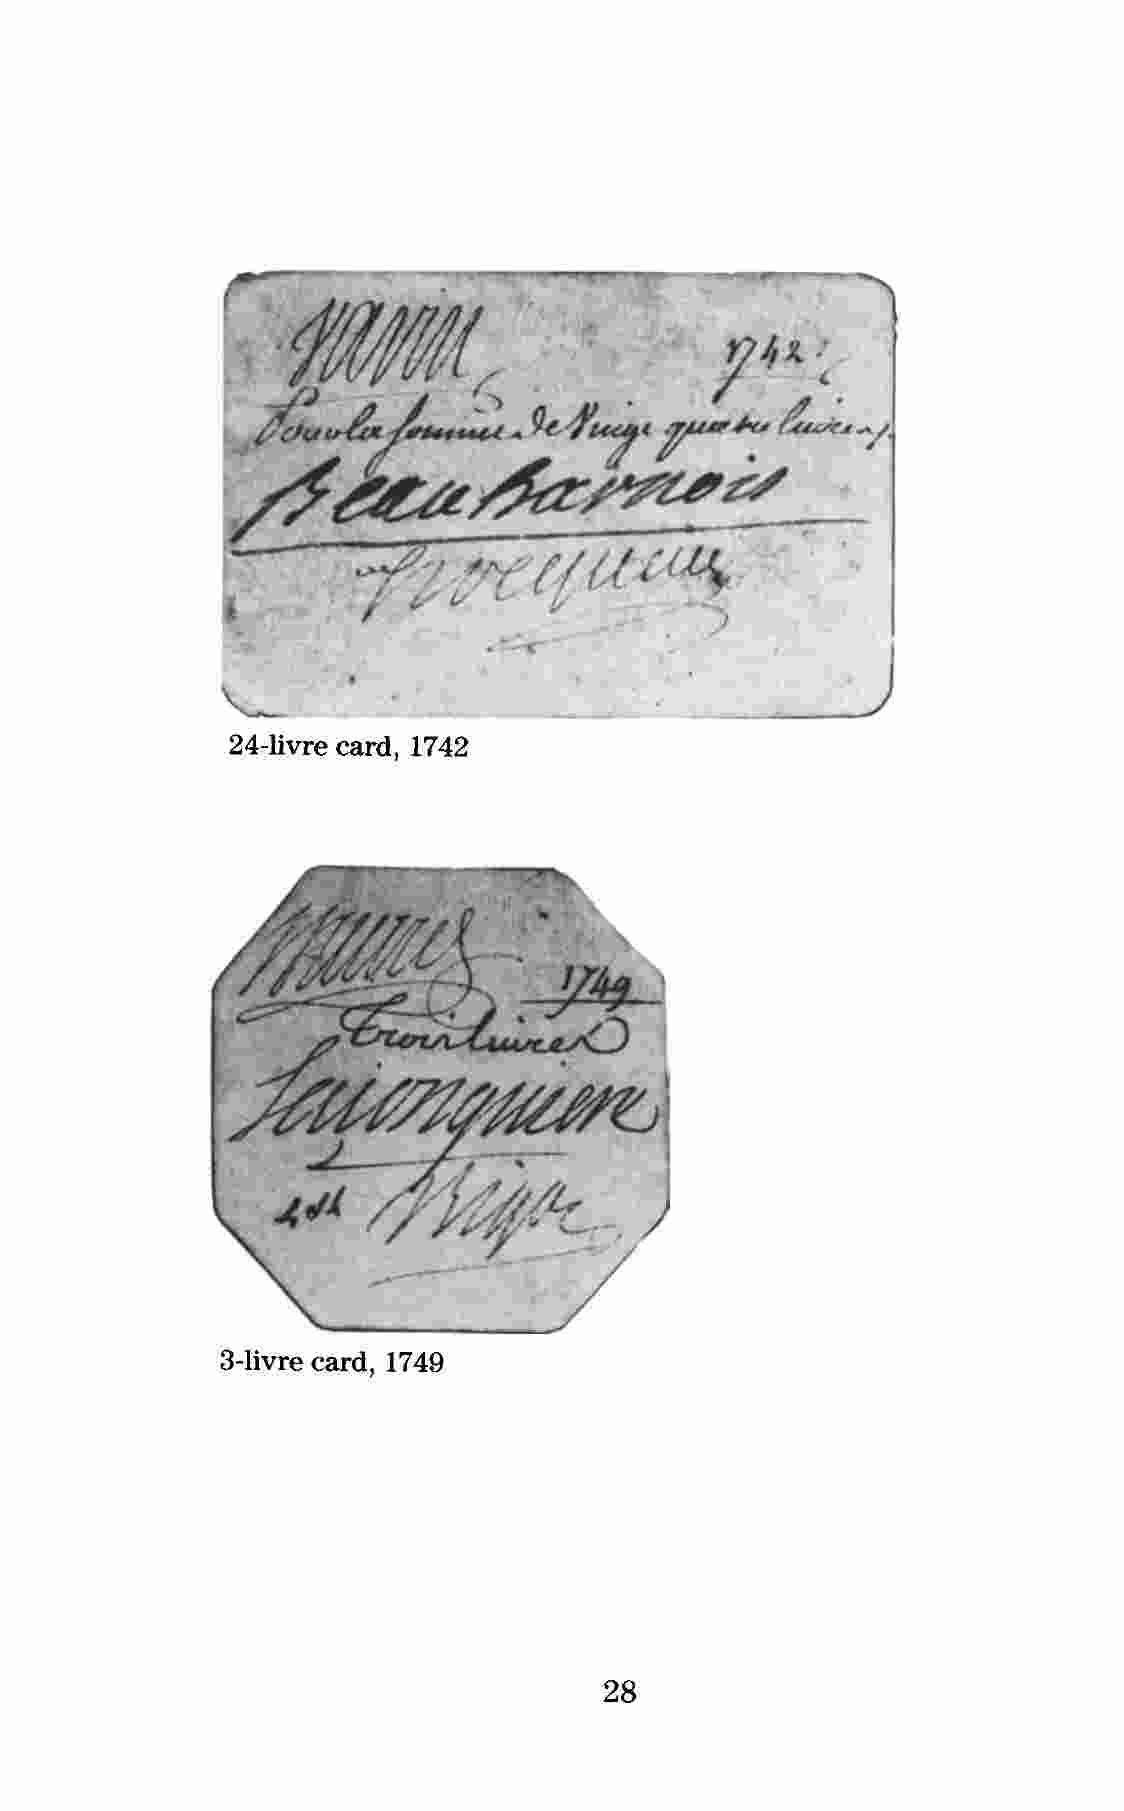 Varin
1742
Pour la somme de Vingt quatre livres
Beauharnois
Hocquart
24-livre card, 1742
1749
Trois livres
Lajonquiere
Bigot
3-livre card, 1749
28